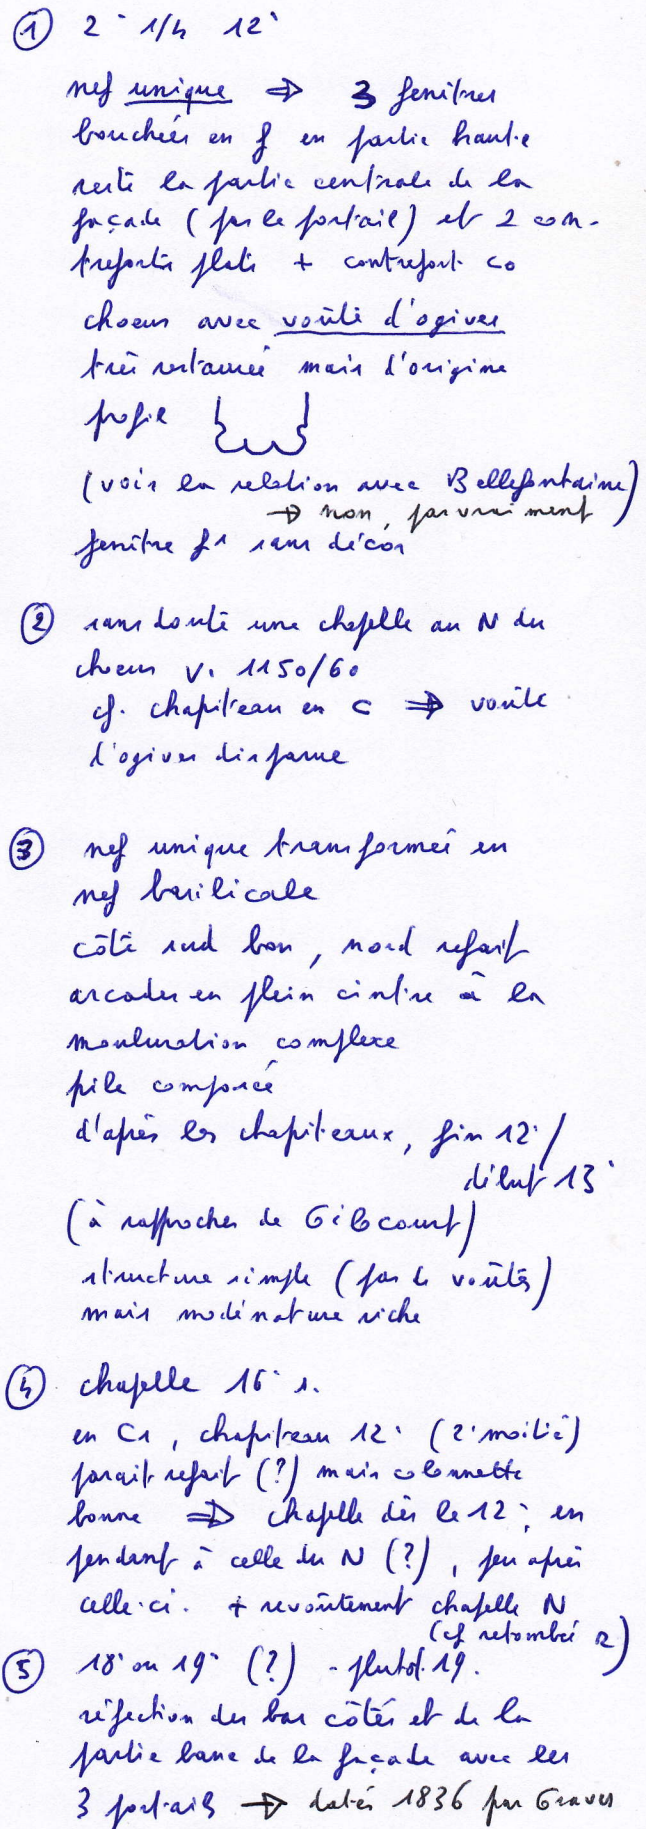 ① 2° 1/4 12°
nef unique ⇒ 3 fenêtres
bouchées en f en partie haute
reste la partie centrale de la
façade (pas le portail) et 2 con-
treforts plats + contrefort co
choeur avec voûte d'ogives
très restaurée mais d'origine
profil
(voir la relation avec Bellefontaine)
→ non, pas vraiment
fenêtre f1 sans décor
② sans doute une chapelle au N du
choeur v. 1150/60
cf. chapiteau en c ⇒ voûte
d'ogives disparue
③ nef unique transformée en
nef basilicale
côté sud bon, nord refait
arcades en plein cintre à la
mouluration complexe
pile composée
d'après les chapiteaux, fin 12°/
début 13°
(à rapprocher de Gilocourt)
structure simple (pas de voûtes)
mais modénature riche
④ chapelle 16° s.
en C1, chapiteau 12° (2° moitié)
parait refait (?) mais colonnette
bonne ⇒ chapelle dès le 12°, en
pendant à celle du N (?), peu après
celle-ci. + revoûtement chapelle N
(cf retombée 2)
⑤ 18° ou 19° (?) - plutot 19.
réfection des bas côtés et de la
partie basse de la façade avec les
3 portails → datés 1836 par Graves